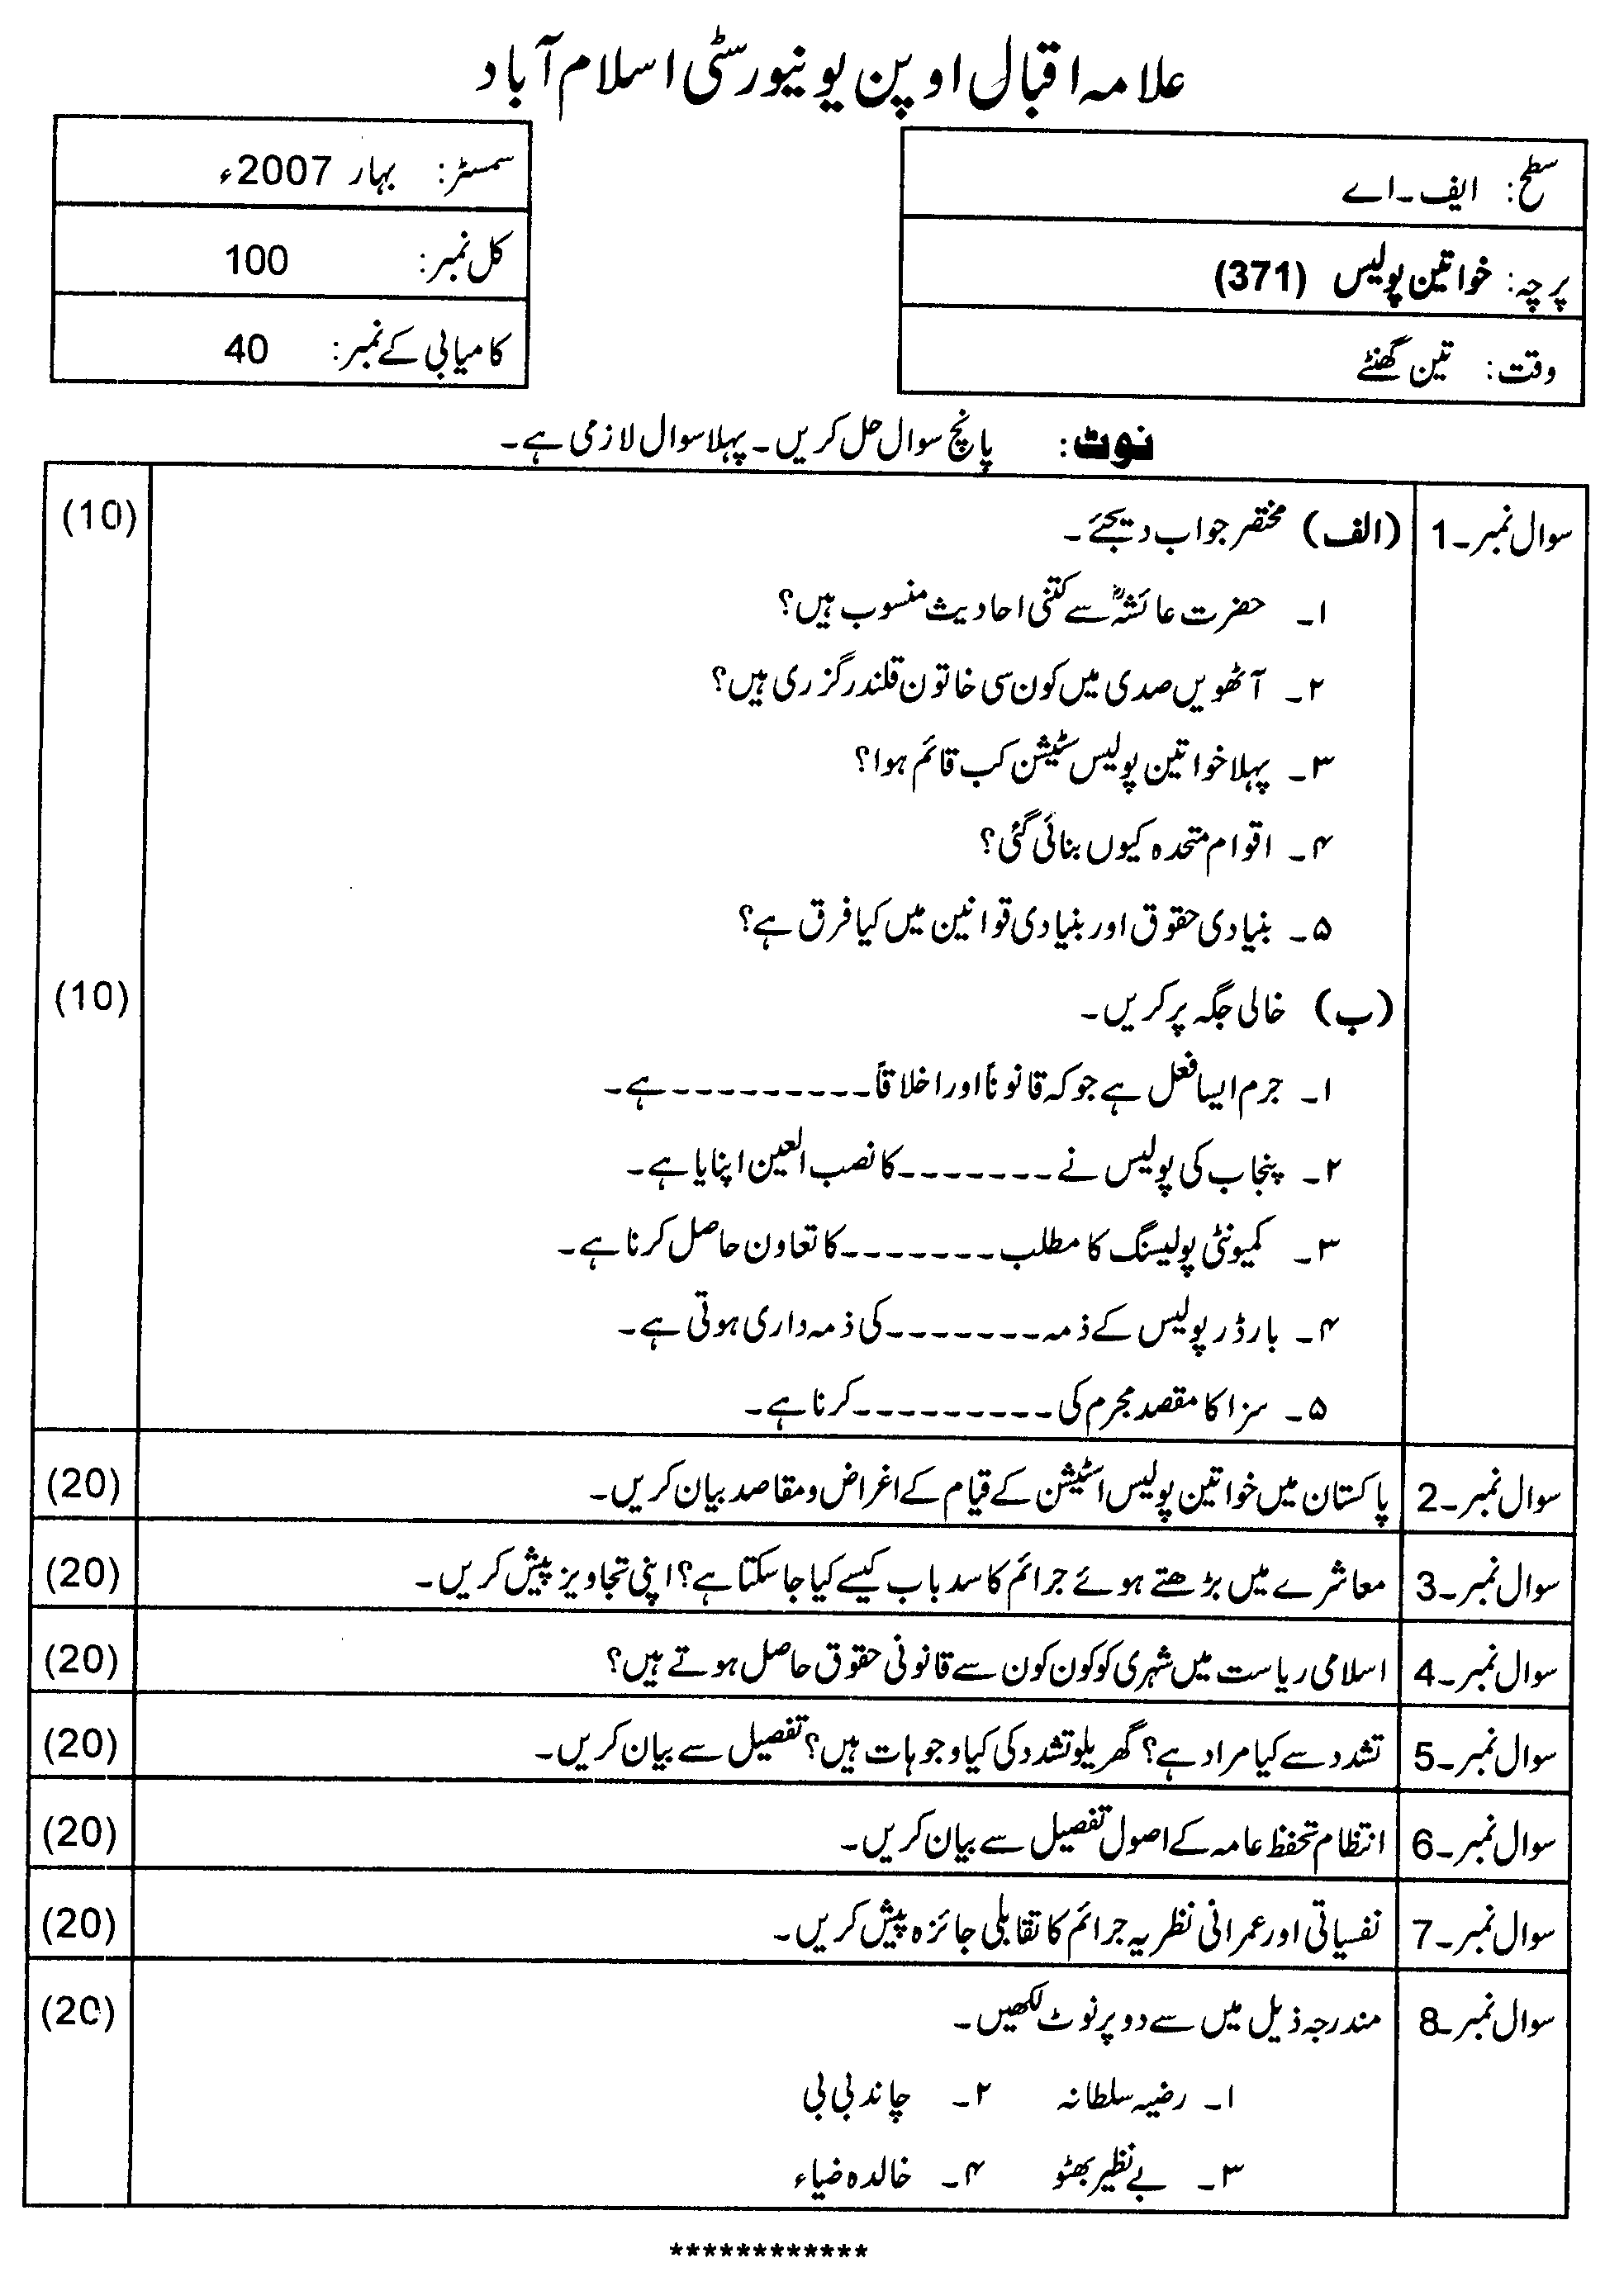 علامہ اقبال اوپن یونیورسٹی اسلام آباد
سطح: ایف۔اے
سمسٹر: بہار 2007ء
پرچہ: خواتین پولیس (371)
کل نمبر: 100
وقت: تین گھنٹے
کامیابی کے نمبر: 40
نوٹ: پانچ سوال حل کریں۔ پہلا سوال لازمی ہے۔
سوال نمبر۔1 (الف) مختصر جواب دیجئے۔ (10)
۱۔ حضرت عائشہؓ سے کتنی احادیث منسوب ہیں؟
۲۔ آٹھویں صدی میں کون سی خاتون قلندر گزری ہیں؟
۳۔ پہلا خواتین پولیس سٹیشن کب قائم ہوا؟
۴۔ اقوام متحدہ کیوں بنائی گئی؟
۵۔ بنیادی حقوق اور بنیادی قوانین میں کیا فرق ہے؟
(ب) خالی جگہ پر کریں۔ (10)
۱۔ جرم ایسا فعل ہے جو کہ قانوناً اور اخلاقاً ---------- ہے۔
۲۔ پنجاب کی پولیس نے -------- کا نصب العین اپنایا ہے۔
۳۔ کمیونٹی پولیسنگ کا مطلب -------- کا تعاون حاصل کرنا ہے۔
۴۔ بارڈر پولیس کے ذمہ -------- کی ذمہ داری ہوتی ہے۔
۵۔ سزا کا مقصد مجرم کی ---------- کرنا ہے۔
سوال نمبر۔2 پاکستان میں خواتین پولیس اسٹیشن کے قیام کے اغراض و مقاصد بیان کریں۔ (20)
سوال نمبر۔3 معاشرے میں بڑھتے ہوئے جرائم کا سدباب کیسے کیا جا سکتا ہے؟ اپنی تجاویز پیش کریں۔ (20)
سوال نمبر۔4 اسلامی ریاست میں شہری کو کون کون سے قانونی حقوق حاصل ہوتے ہیں؟ (20)
سوال نمبر۔5 تشدد سے کیا مراد ہے؟ گھریلو تشدد کی کیا وجوہات ہیں؟ تفصیل سے بیان کریں۔ (20)
سوال نمبر۔6 انتظام تحفظ عامہ کے اصول تفصیل سے بیان کریں۔ (20)
سوال نمبر۔7 نفسیاتی اور عمرانی نظریہ جرائم کا تقابلی جائزہ پیش کریں۔ (20)
سوال نمبر۔8 مندرجہ ذیل میں سے دو پر نوٹ لکھیں۔ (20)
۱۔ رضیہ سلطانہ ۲۔ چاند بی بی
۳۔ بے نظیر بھٹو ۴۔ خالدہ ضیاء
************